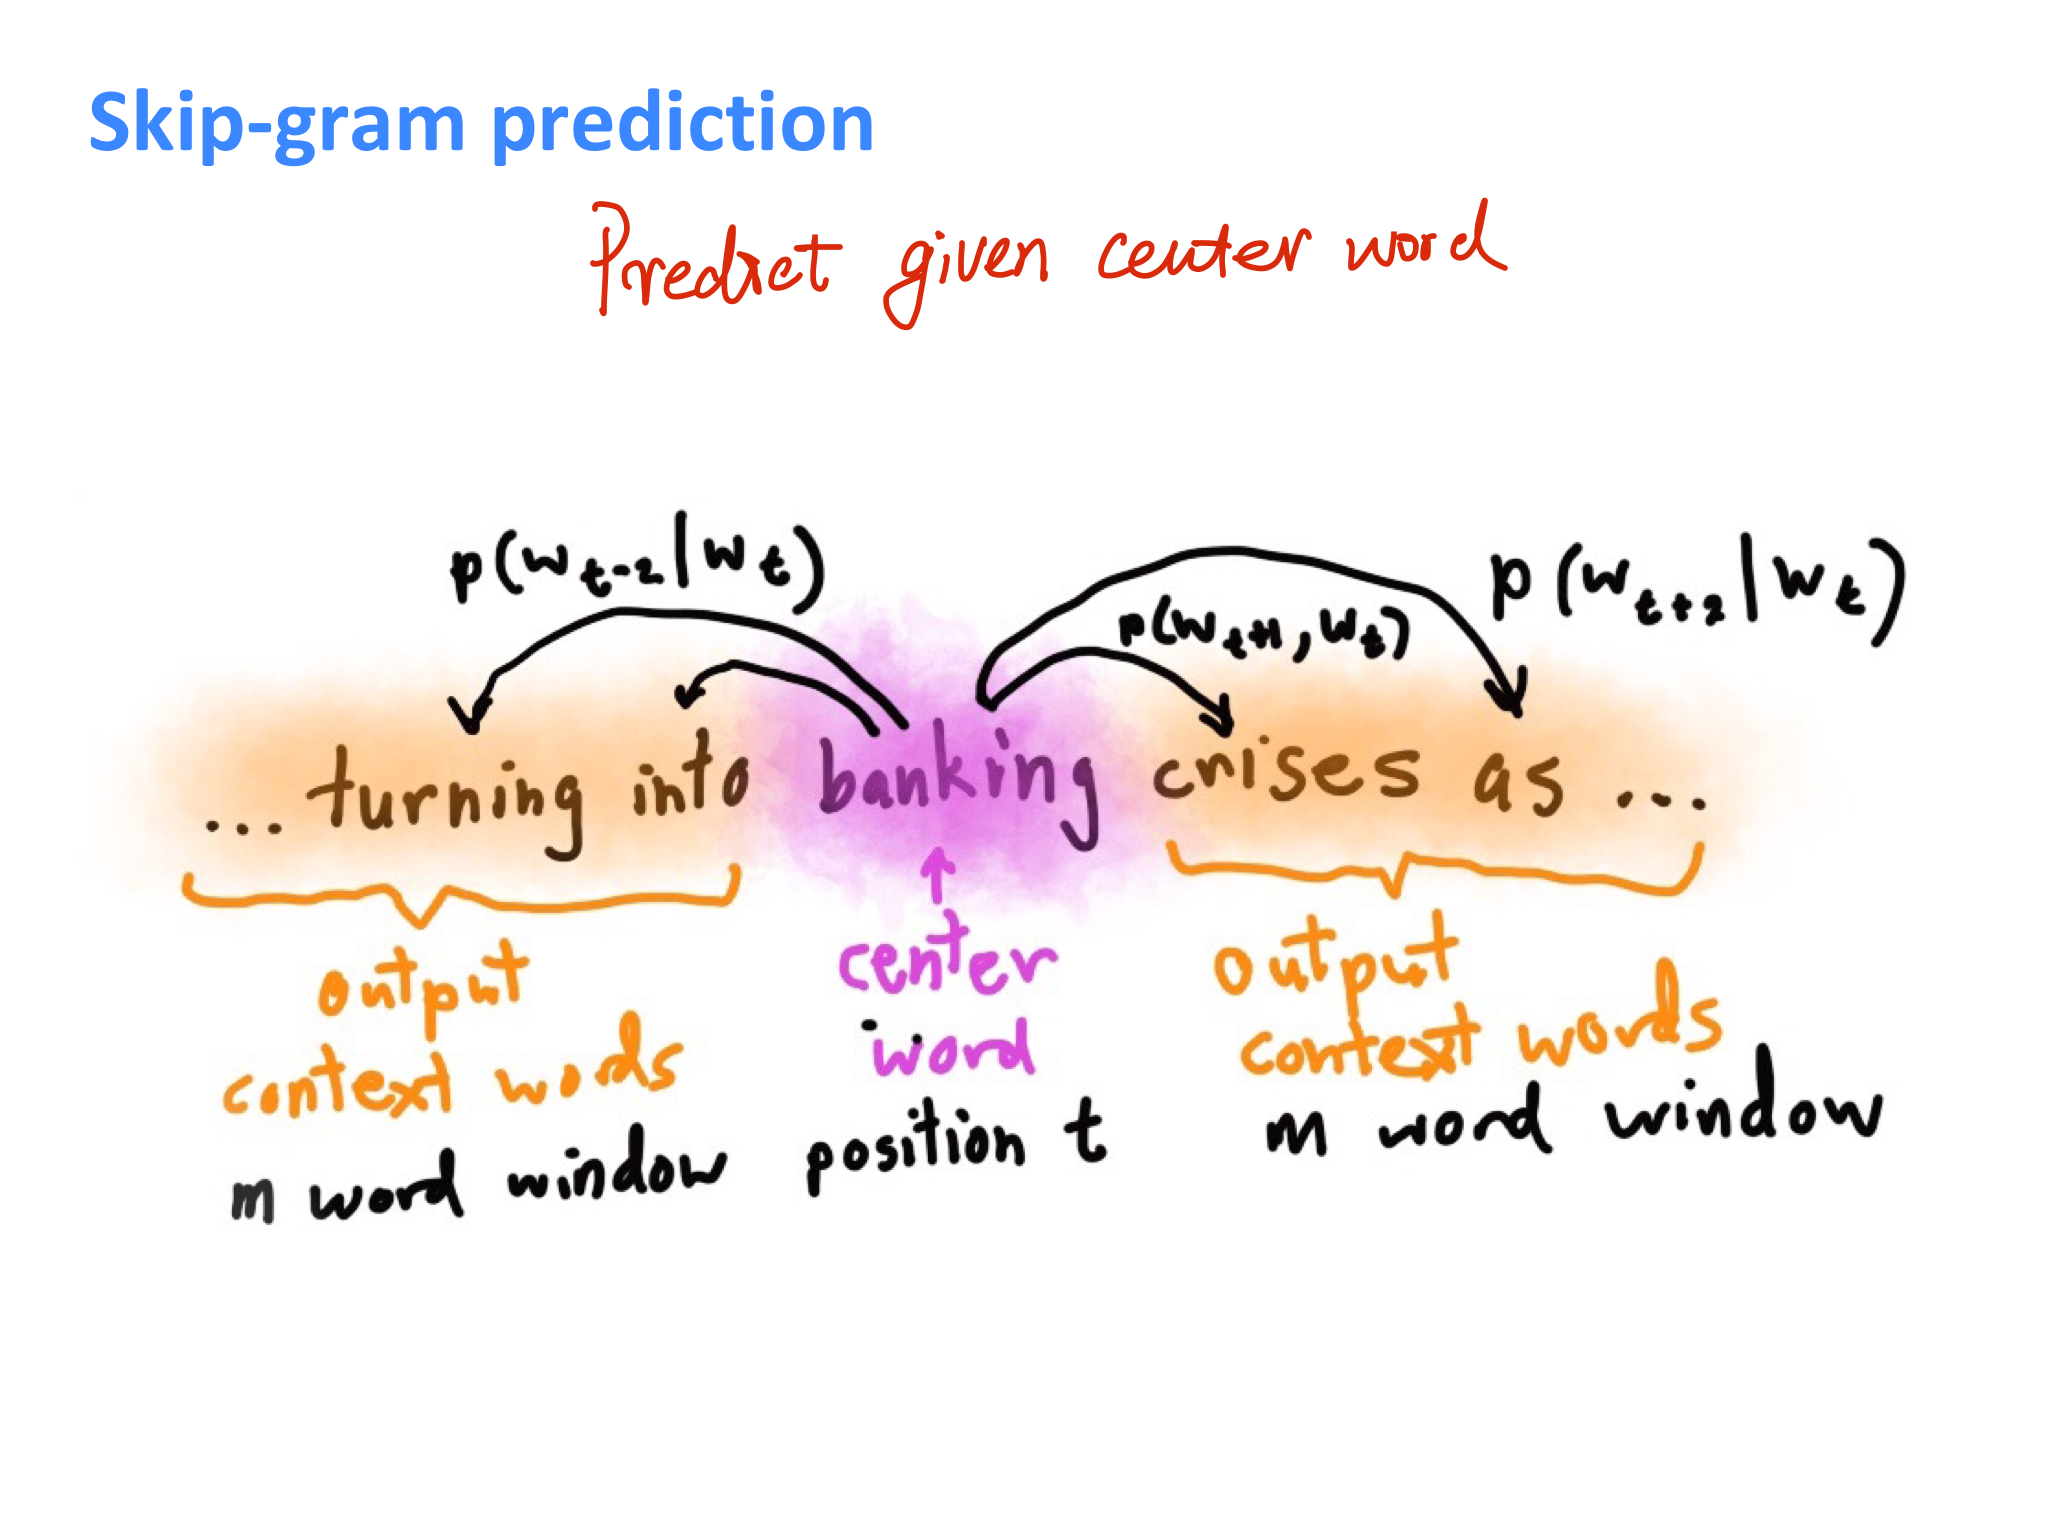 Skip-gram prediction
Predict given center word
p(w_{t-2}|w_t)
p(w_{t+1}, w_t)
p(w_{t+2}|w_t)
... turning into banking crises as ...
output
context words
m word window
center
word
position t
output
context words
m word window